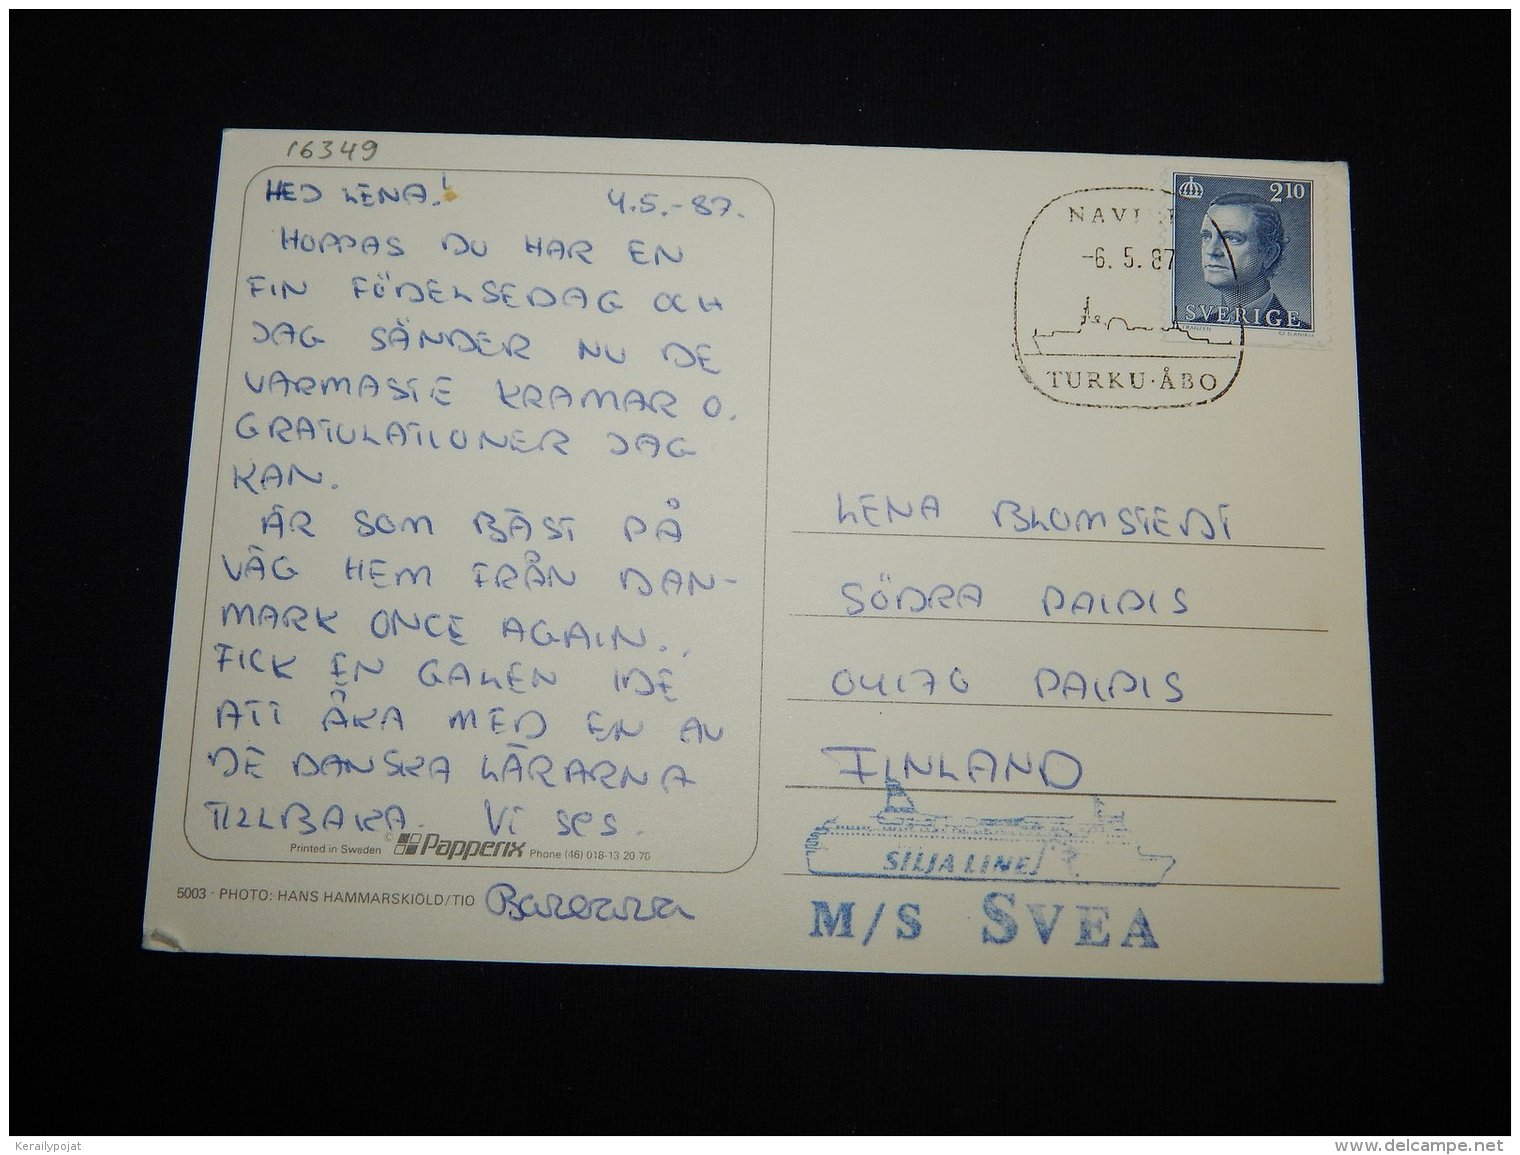 16349
HEJ LENA! 4.5.-87.
HOPPAS DU HAR EN
FIN FÖDELSEDAG OCH
JAG SÄNDER NU DE
VARMASTE KRAMAR O.
GRATULATIONER JAG
KAN.
ÄR SOM BÄST PÅ
VÄG HEM FRÅN DAN-
MARK ONCE AGAIN..
FICK EN GALEN IDE
ATT ÅKA MED EN AV
DE DANSKA LÄRARNA
TILLBAKA. VI SES.
Printed in Sweden © Papperix Phone (46) 018-13 20 70
5003 · PHOTO: HANS HAMMARSKIÖLD/TIO
NAVI
-6. 5. 87
TURKU·ÅBO
210
SVERIGE
LENA BLOMSTEDT
SÖDRA PAIPIS
04170 PAIPIS
FINLAND
SILJA LINE
M/S SVEA
Kerailypojat
www.delcampe.net